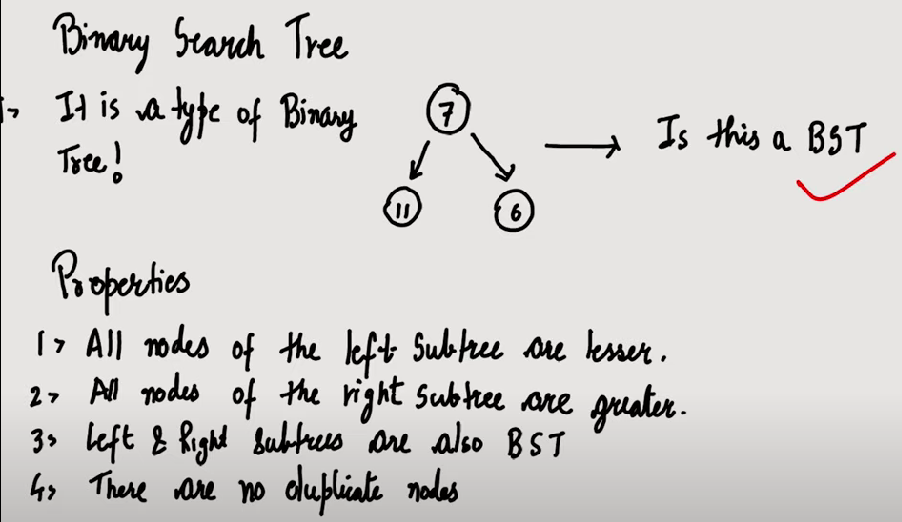 Binary Search Tree
It is a type of Binary
Tree!
7
11
6
Is this a BST
Properties
1> All nodes of the left subtree are lesser.
2> All nodes of the right subtree are greater.
3> Left & Right subtrees are also BST
4> There are no duplicate nodes